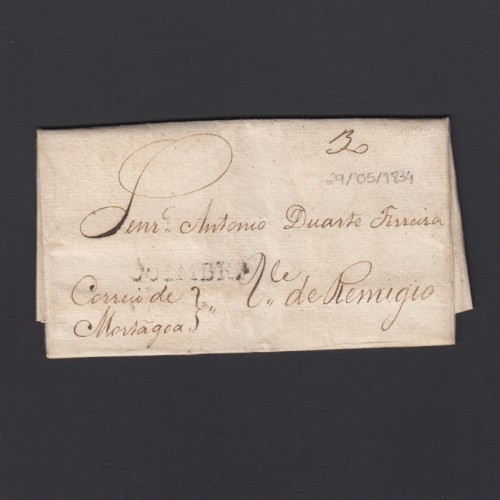 29/05/1834
Senr. Antonio Duarte Ferreira
COIMBRA
Correio de
Mortágoa
de Remigio